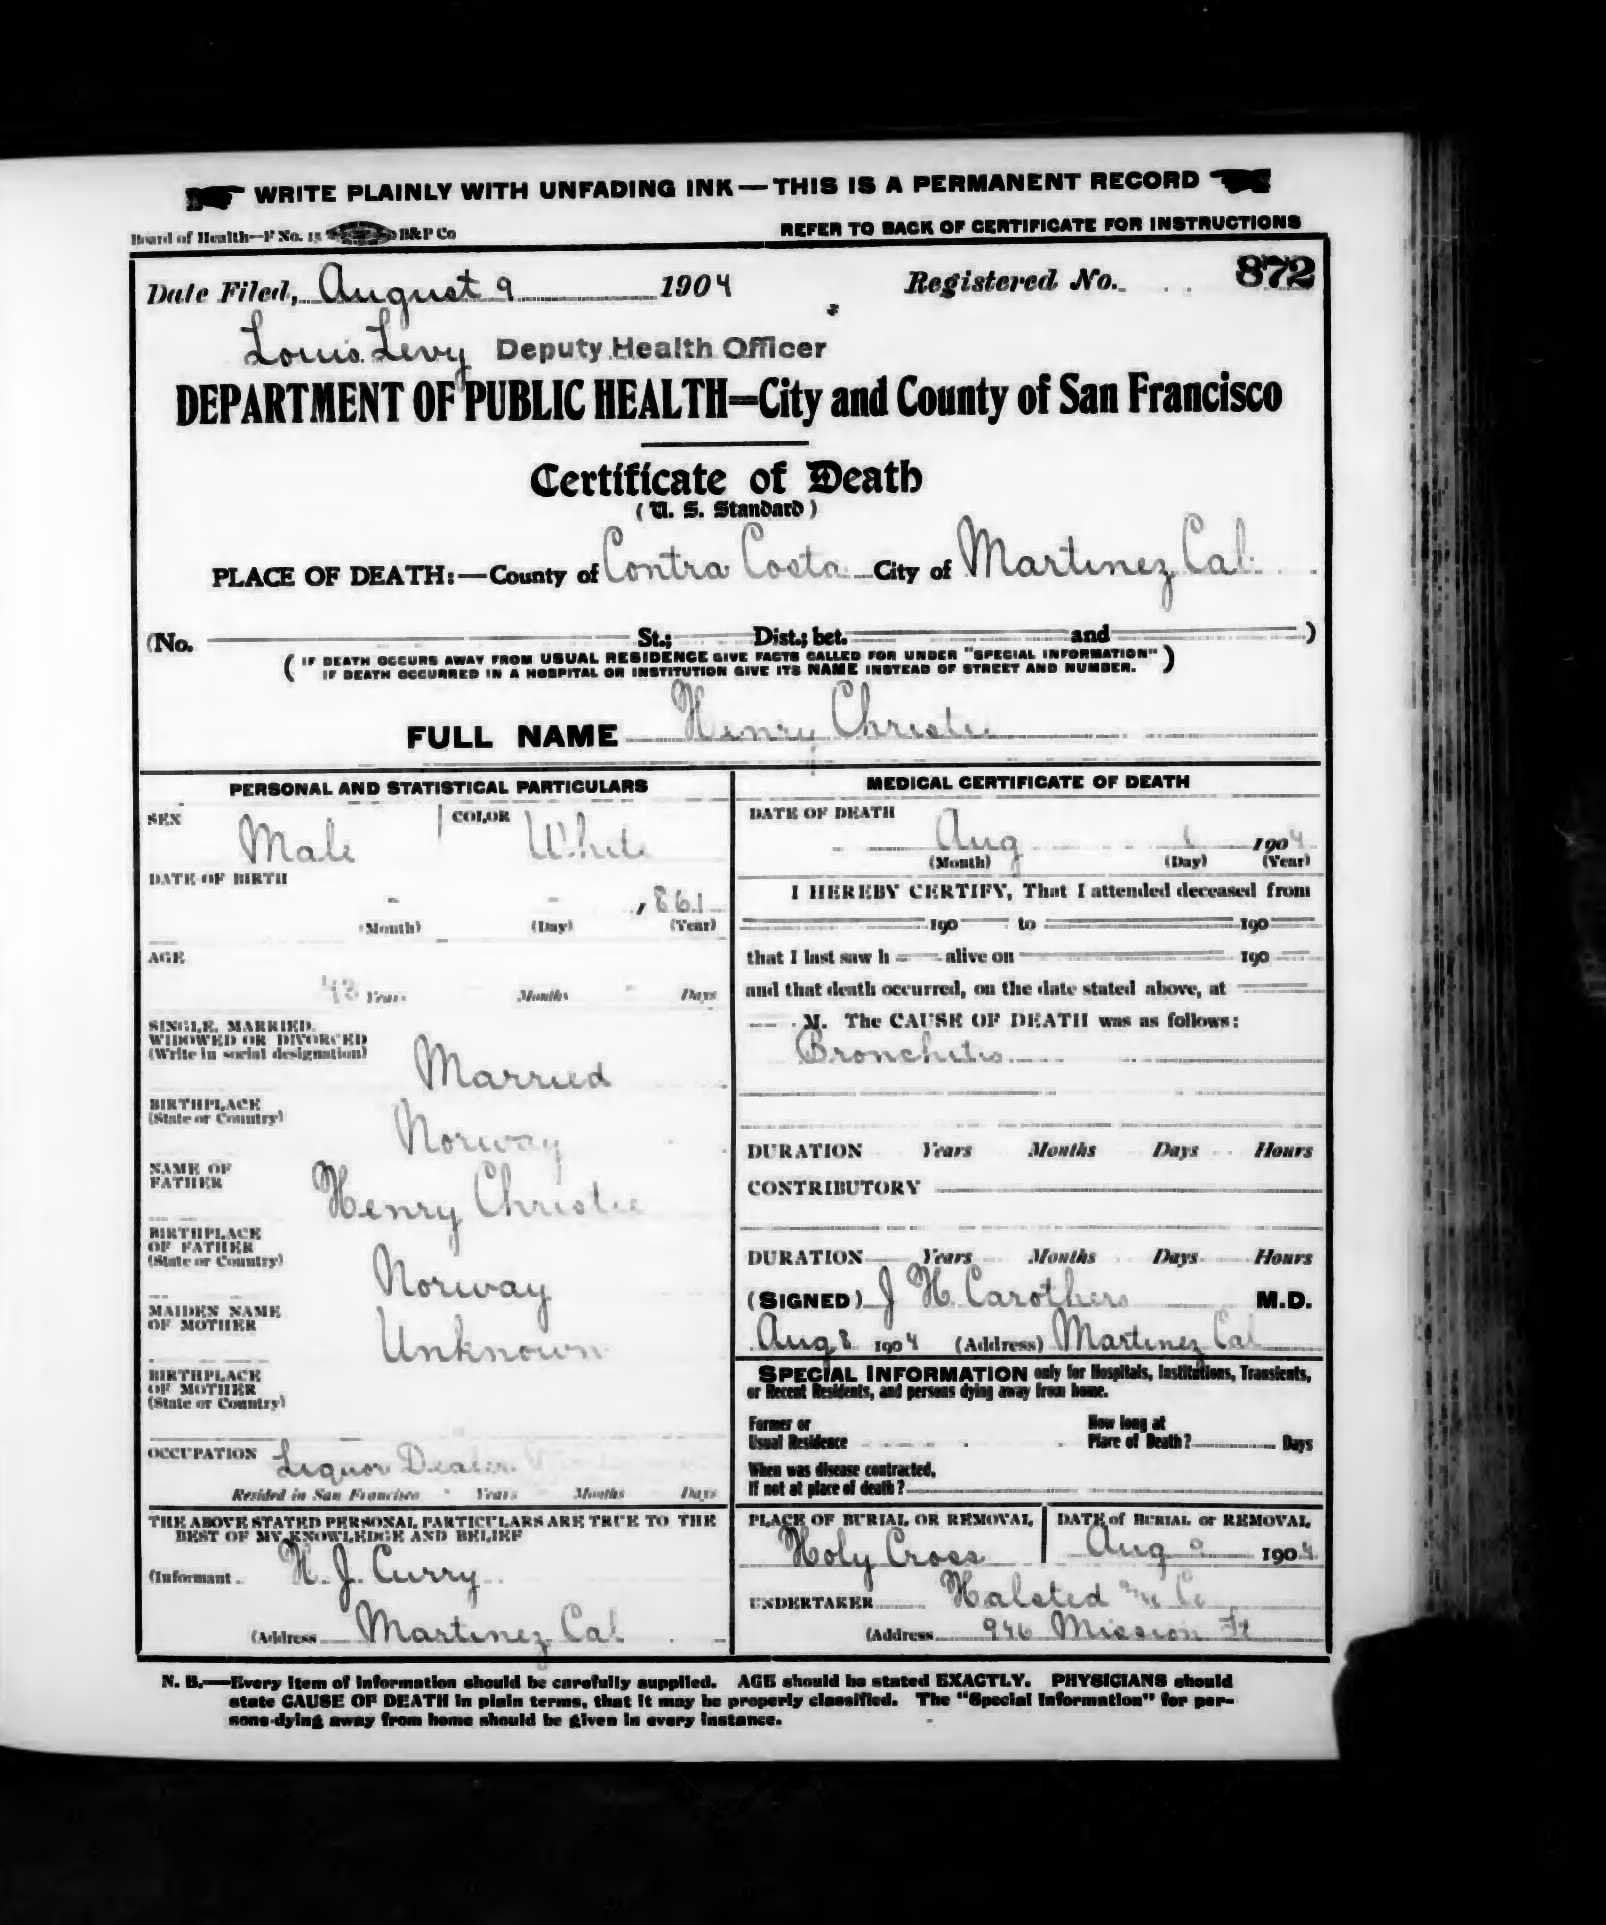 WRITE PLAINLY WITH UNFADING INK—THIS IS A PERMANENT RECORD
Board of Health—F No. 15 B&P Co
REFER TO BACK OF CERTIFICATE FOR INSTRUCTIONS
Date Filed, August 9 1904 Registered No. 872
Louis Levy Deputy Health Officer
DEPARTMENT OF PUBLIC HEALTH=City and County of San Francisco
Certificate of Death
(U. S. Standard)
PLACE OF DEATH:—County of Contra Costa City of Martinez Cal.
(No. St.; Dist.; bet. and )
(IF DEATH OCCURS AWAY FROM USUAL RESIDENCE GIVE FACTS CALLED FOR UNDER "SPECIAL INFORMATION"
IF DEATH OCCURRED IN A HOSPITAL OR INSTITUTION GIVE ITS NAME INSTEAD OF STREET AND NUMBER.)
FULL NAME Henry Christie
PERSONAL AND STATISTICAL PARTICULARS
SEX Male COLOR White
DATE OF BIRTH
- - , 861
(Month) (Day) (Year)
AGE
43 Years Months - Days
SINGLE, MARRIED,
WIDOWED OR DIVORCED
(Write in social designation)
Married
BIRTHPLACE
(State or Country)
Norway
NAME OF
FATHER
Henry Christie
BIRTHPLACE
OF FATHER
(State or Country)
Norway
MAIDEN NAME
OF MOTHER
Unknown
BIRTHPLACE
OF MOTHER
(State or Country)
OCCUPATION Liquor Dealer
Resided in San Francisco Years Months Days
THE ABOVE STATED PERSONAL PARTICULARS ARE TRUE TO THE
BEST OF MY KNOWLEDGE AND BELIEF
(Informant H. J. Curry
(Address Martinez Cal
MEDICAL CERTIFICATE OF DEATH
DATE OF DEATH
Aug 1904
(Month) (Day) (Year)
I HEREBY CERTIFY, That I attended deceased from
190 to 190
that I last saw h alive on 190
and that death occurred, on the date stated above, at
M. The CAUSE OF DEATH was as follows:
Bronchitis
DURATION Years Months Days Hours
CONTRIBUTORY
DURATION Years Months Days Hours
(SIGNED) J H Carothers M.D.
Aug 8 1904 (Address) Martinez Cal
SPECIAL INFORMATION only for Hospitals, Institutions, Transients,
or Recent Residents, and persons dying away from home.
Former or
Usual Residence
How long at
Place of Death? Days
When was disease contracted,
If not at place of death?
PLACE OF BURIAL OR REMOVAL
Holy Cross
DATE of BURIAL or REMOVAL
Aug 9 1904
UNDERTAKER Halsted & Co
(Address 946 Mission St
N. B.—Every item of information should be carefully supplied. AGE should be stated EXACTLY. PHYSICIANS should
state CAUSE OF DEATH in plain terms, that it may be properly classified. The "Special Information" for per-
sons dying away from home should be given in every instance.